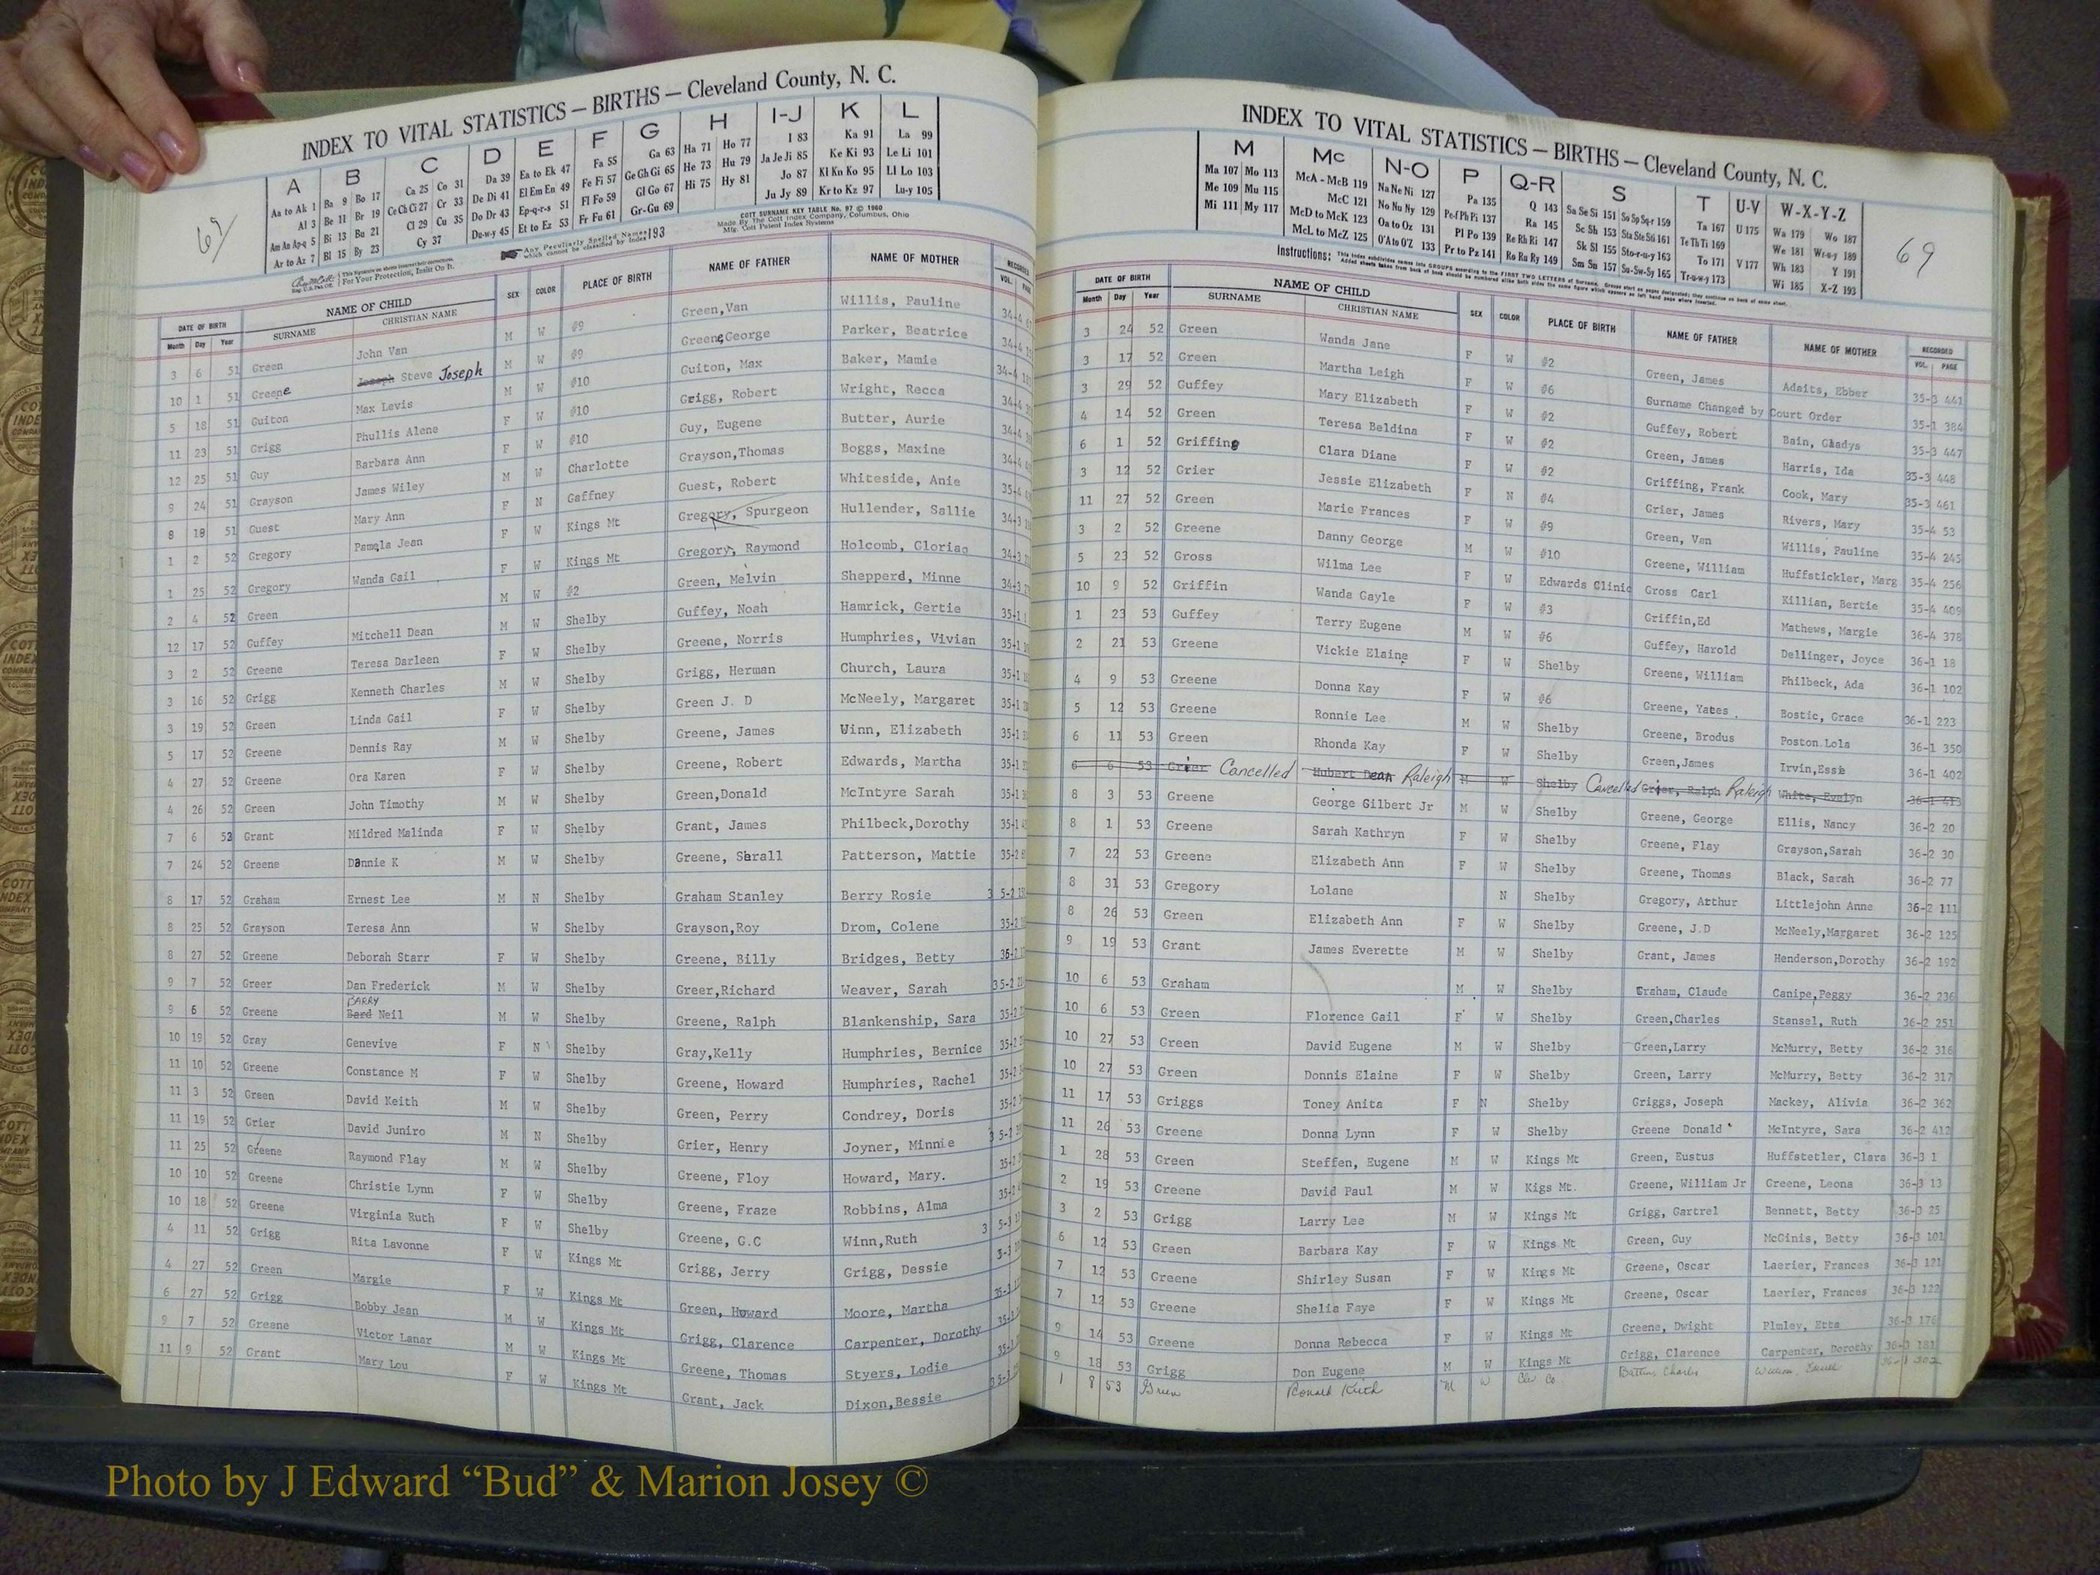 INDEX TO VITAL STATISTICS — BIRTHS — Cleveland County, N. C.
69
A B C D E F G H I-J K L
Aa to Ak 1 Ba 9 Bo 17 Ca 25 Co 31 Da 39 Ea to Ek 47 Fa 55 Ga 63 Ha 71 Ho 77 I 83 Ka 91 La 99
Al 3 Be 11 Br 19 Ce Ch Ci 27 Cr 33 De Di 41 El Em En 49 Fe Fi 57 Ge Gh Gi 65 He 73 Hu 79 Ja Je Ji 85 Ke Ki 93 Le Li 101
Am An Ap-q 5 Bi 13 Bu 21 Cl 29 Cu 35 Do Dr 43 Ep-q-r-s 51 Fl Fo 59 Gl Go 67 Hi 75 Hy 81 Jo 87 Kl Kn Ko 95 Ll Lo 103
Ar to Az 7 Bl 15 By 23 Cy 37 Du-w-y 45 Et to Ez 53 Fr Fu 61 Gr-Gu 69 Ju Jy 89 Kr to Kz 97 Lu-y 105
For Your Protection, Insist On It.
Any Peculiarly Spelled Names which cannot be classified by Index 193
COTT SURNAME KEY TABLE No. 97 © 1960
Made By The Cott Index Company, Columbus, Ohio
Mfg. Cott Patent Index Systems
DATE OF BIRTH NAME OF CHILD SEX COLOR PLACE OF BIRTH NAME OF FATHER NAME OF MOTHER RECORDED
Month Day Year SURNAME CHRISTIAN NAME VOL. PAGE
3 6 51 Green John Van M W #9 Green,Van Willis, Pauline 34-4
10 1 51 Greene Joseph Steve Joseph M W #9 Greene George Parker, Beatrice 34-4
5 18 51 Guiton Max Levis M W #10 Guiton, Max Baker, Mamie 34-4
11 23 51 Grigg Phullis Alene F W #10 Grigg, Robert Wright, Recca 34-4
12 25 51 Guy Barbara Ann F W #10 Guy, Eugene Butter, Aurie 34-4
9 24 51 Grayson James Wiley M W Charlotte Grayson,Thomas Boggs, Maxine 34-4
8 18 51 Guest Mary Ann F N Gaffney Guest, Robert Whiteside, Anie 35-4
1 2 52 Gregory Pamela Jean F W Kings Mt Gregory, Spurgeon Hullender, Sallie 34-3
1 25 52 Gregory Wanda Gail F W Kings Mt Gregory, Raymond Holcomb, Gloria 34-3
2 4 52 Green M W #2 Green, Melvin Shepperd, Minne 34-3
12 17 52 Guffey Mitchell Dean M W Shelby Guffey, Noah Hamrick, Gertie 35-1
3 2 52 Greene Teresa Darleen F W Shelby Greene, Norris Humphries, Vivian 35-1
3 16 52 Grigg Kenneth Charles M W Shelby Grigg, Herman Church, Laura 35-1
3 19 52 Green Linda Gail F W Shelby Green J. D McNeely, Margaret 35-1
5 17 52 Greene Dennis Ray M W Shelby Greene, James Winn, Elizabeth 35-1
4 27 52 Greene Ora Karen F W Shelby Greene, Robert Edwards, Martha 35-1
4 26 52 Green John Timothy M W Shelby Green,Donald McIntyre Sarah 35-1
7 6 52 Grant Mildred Malinda F W Shelby Grant, James Philbeck,Dorothy 35-1
7 24 52 Greene Donnie K M W Shelby Greene, Shrall Patterson, Mattie 35-2
8 17 52 Graham Ernest Lee M N Shelby Graham Stanley Berry Rosie 35-2
8 25 52 Grayson Teresa Ann W Shelby Grayson,Roy Drom, Colene 35-2
8 27 52 Greene Deborah Starr F W Shelby Greene, Billy Bridges, Betty 35-2
9 7 52 Greer Dan Frederick M W Shelby Greer,Richard Weaver, Sarah 35-2
9 6 52 Greene BARRY Neil M W Shelby Greene, Ralph Blankenship, Sara 35-2
10 19 52 Gray Genevive F N Shelby Gray,Kelly Humphries, Bernice 35-2
11 10 52 Greene Constance M F W Shelby Greene, Howard Humphries, Rachel 35-2
11 3 52 Green David Keith M W Shelby Green, Perry Condrey, Doris 35-2
11 19 52 Grier David Juniro M N Shelby Grier, Henry Joyner, Minnie 35-2
11 25 52 Greene Raymond Flay M W Shelby Greene, Floy Howard, Mary. 35-2
10 10 52 Greene Christie Lynn F W Shelby Greene, Fraze Robbins, Alma 35-2
10 18 52 Greene Virginia Ruth F W Shelby Greene, G.C Winn,Ruth 35-3
4 11 52 Grigg Rita Lavonne F W Kings Mt Grigg, Jerry Grigg, Dessie
4 27 52 Green Margie F W Kings Mt Green, Howard Moore, Martha 35-3
6 27 52 Grigg Bobby Jean M W Kings Mt Grigg, Clarence Carpenter, Dorothy 35-3
9 7 52 Greene Victor Lanar M W Kings Mt Greene, Thomas Styers, Lodie 35-3
11 9 52 Grant Mary Lou F W Kings Mt Grant, Jack Dixon,Bessie 35-3
INDEX TO VITAL STATISTICS — BIRTHS — Cleveland County, N. C.
69
M Mc N-O P Q-R S T U-V W-X-Y-Z
Ma 107 Mo 113 McA - McB 119 Na Ne Ni 127 Pa 135 Q 143 Sa Se Si 151 So Sp Sq-r 159 Ta 167 U 175 Wa 179 Wo 187
Me 109 Mu 115 McC 121 No Nu Ny 129 Pe-f Ph Pi 137 Ra 145 Sc Sh 153 Sta Ste Sti 161 Te Th Ti 169 We 181 Wr-u-y 189
Mi 111 My 117 McD to McK 123 Oa to Oz 131 Pl Po 139 Re Rh Ri 147 Sk Sl 155 Sto-r-u-y 163 To 171 V 177 Wh 183 Y 191
McL to McZ 125 O'A to O'Z 133 Pr to Pz 141 Ro Ru Ry 149 Sm Sn 157 Su-Sw-Sy 165 Tr-u-w-y 173 Wi 185 X-Z 193
Instructions:
DATE OF BIRTH NAME OF CHILD SEX COLOR PLACE OF BIRTH NAME OF FATHER NAME OF MOTHER RECORDED
Month Day Year SURNAME CHRISTIAN NAME VOL. PAGE
3 24 52 Green Wanda Jane F W #2 Green, James Adaits, Ebber 35-3 441
3 17 52 Green Martha Leigh F W #6 Surname Changed by Court Order 35-1 384
3 29 52 Guffey Mary Elizabeth F W #2 Guffey, Robert Bain, Gladys 35-3 447
4 14 52 Green Teresa Beldina F W #2 Green, James Harris, Ida 35-3 448
6 1 52 Griffing Clara Diane F W #2 Griffing, Frank Cook, Mary 35-3 461
3 12 52 Grier Jessie Elizabeth F N #4 Grier, James Rivers, Mary 35-4 53
11 27 52 Green Marie Frances F W #9 Green, Van Willis, Pauline 35-4 245
3 2 52 Greene Danny George M W #10 Greene, William Huffstickler, Marg 35-4 256
5 23 52 Gross Wilma Lee F W Edwards Clinic Gross Carl Killian, Bertie 35-4 409
10 9 52 Griffin Wanda Gayle F W #3 Griffin,Ed Mathews, Margie 36-4 378
1 23 53 Guffey Terry Eugene M W #6 Guffey, Harold Dellinger, Joyce 36-1 18
2 21 53 Greene Vickie Elaine F W Shelby Greene, William Philbeck, Ada 36-1 102
4 9 53 Greene Donna Kay F W #6 Greene, Yates Bostic, Grace 36-1 223
5 12 53 Greene Ronnie Lee M W Shelby Greene, Brodus Poston Lola 36-1 350
6 11 53 Green Rhonda Kay F W Shelby Green,James Irvin,Essie 36-1 402
6 6 53 Grier Cancelled Hubert Dean Raleigh M W Shelby Cancelled Grier, Ralph Raleigh White, Evelyn 36-1 413
8 3 53 Greene George Gilbert Jr M W Shelby Greene, George Ellis, Nancy 36-2 20
8 1 53 Greene Sarah Kathryn F W Shelby Greene, Flay Grayson,Sarah 36-2 30
7 22 53 Greene Elizabeth Ann F W Shelby Greene, Thomas Black, Sarah 36-2 77
8 31 53 Gregory Lolane N Shelby Gregory, Arthur Littlejohn Anne 36-2 111
8 26 53 Green Elizabeth Ann F W Shelby Greene, J.D McNeely,Margaret 36-2 125
9 19 53 Grant James Everette M W Shelby Grant, James Henderson,Dorothy 36-2 192
10 6 53 Graham M W Shelby Graham, Claude Canipe,Peggy 36-2 236
10 6 53 Green Florence Gail F W Shelby Green,Charles Stansel, Ruth 36-2 251
10 27 53 Green David Eugene M W Shelby Green,Larry McMurry, Betty 36-2 316
10 27 53 Green Donnis Elaine F W Shelby Green, Larry McMurry, Betty 36-2 317
11 17 53 Griggs Toney Anita F N Shelby Griggs, Joseph Mackey, Alivia 36-2 362
11 26 53 Greene Donna Lynn F W Shelby Greene Donald McIntyre, Sara 36-2 412
1 28 53 Green Steffen, Eugene M W Kings Mt Green, Eustus Huffstetler, Clara 36-3 1
2 19 53 Greene David Paul M W Kigs Mt. Greene, William Jr Greene, Leona 36-3 13
3 2 53 Grigg Larry Lee M W Kings Mt Grigg, Gartrel Bennett, Betty 36-3 25
6 12 53 Green Barbara Kay F W Kings Mt Green, Guy McGinis, Betty 36-3 101
7 12 53 Greene Shirley Susan F W Kings Mt Greene, Oscar Laerier, Frances 36-3 121
7 12 53 Greene Shelia Faye F W Kings Mt Greene, Oscar Laerier, Frances 36-3 122
9 14 53 Greene Donna Rebecca F W Kings Mt Greene, Dwight Plmley, Etta 36-3 176
9 18 53 Grigg Don Eugene M W Kings Mt Grigg, Clarence Carpenter, Dorothy 36-3 181
1 8 53 Green Ronald Keith M W Clev. Co. Charles
Photo by J Edward “Bud” & Marion Josey ©